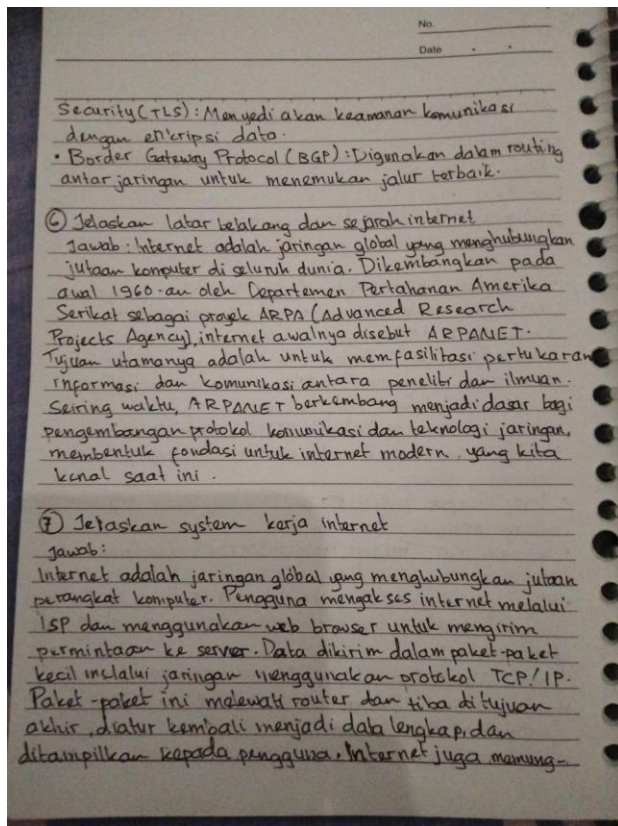 No.
Date
Security (TLS) : Menyediakan keamanan komunikasi
dengan enkripsi data.
• Border Gateway Protocol (BGP) : Digunakan dalam routing
antar jaringan untuk menemukan jalur terbaik.
⑥ Jelaskan latar belakang dan sejarah internet
Jawab : Internet adalah jaringan global yang menghubungkan
jutaan komputer di seluruh dunia. Dikembangkan pada
awal 1960-an oleh Departemen Pertahanan Amerika
Serikat sebagai proyek ARPA (Advanced Research
Projects Agency), internet awalnya disebut ARPANET.
Tujuan utamanya adalah untuk memfasilitasi pertukaran
informasi dan komunikasi antara peneliti dan ilmuan.
Seiring waktu, ARPANET berkembang menjadi dasar bagi
pengembangan protokol komunikasi dan teknologi jaringan,
membentuk fondasi untuk internet modern yang kita
kenal saat ini.
⑦ Jelaskan system kerja internet
Jawab :
Internet adalah jaringan global yang menghubungkan jutaan
perangkat komputer. Pengguna mengakses internet melalui
ISP dan menggunakan web browser untuk mengirim
permintaan ke server. Data dikirim dalam paket-paket
kecil melalui jaringan menggunakan protokol TCP/IP.
Paket-paket ini melewati router dan tiba di tujuan
akhir, diatur kembali menjadi data lengkap, dan
ditampilkan kepada pengguna. Internet juga memung-